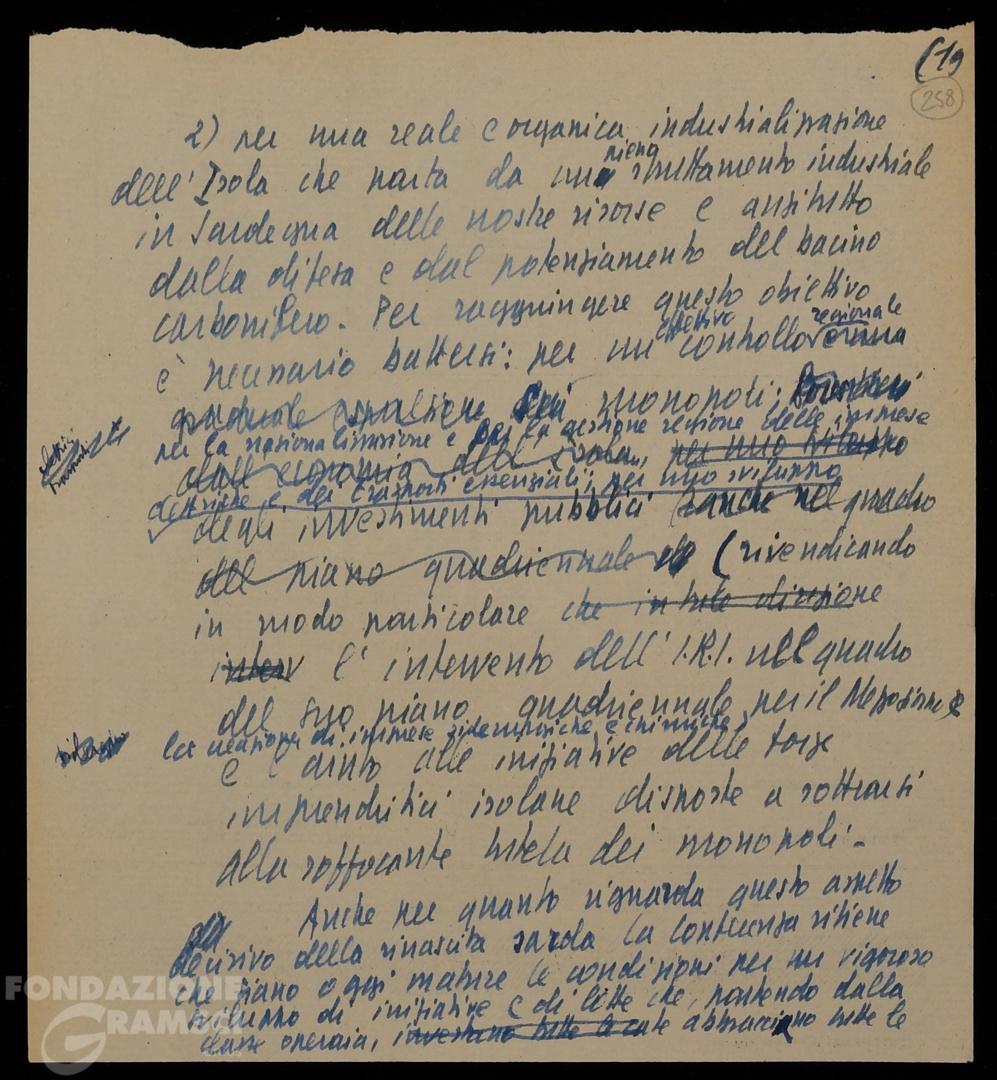 (19
258
2) per una reale e organica industrializzazione
pieno
dell'Isola che parta da uno sfruttamento industriale
in Sardegna delle nostre risorse e anzitutto
dalla difesa e dal potenziamento del bacino
carbonifero. Per raggiungere questo obiettivo
effettivo regionale
è necessario battersi: per un controllo e una
graduale espulsione dei monopoli;
per la nazionalizzazione e per la gestione regione delle imprese
dall'economia dell'Isola, per uno sviluppo
elettriche e dei trasporti essenziali; per uno sviluppo
degli investimenti pubblici (anche nel quadro
del piano quadriennale (rivendicando
in modo particolare che in tale direzione
interv l'intervento dell'I.R.I. nel quadro
del suo piano quadriennale per il Mezzogiorno e
la creazione di imprese siderurgiche e chimiche)
e l'aiuto alle iniziative delle forze
imprenditrici isolane disposte a sottrarsi
alla soffocante tutela dei monopoli.
Anche per quanto riguarda questo aspetto
decisivo della rinascita sarda la Conferenza ritiene
che siano oggi mature le condizioni per un vigoroso
sviluppo di iniziative e di lotte che, partendo dalla
classe operaia, investano tutte le abbracciano tutte le
FONDAZIONE
GRAMSCI